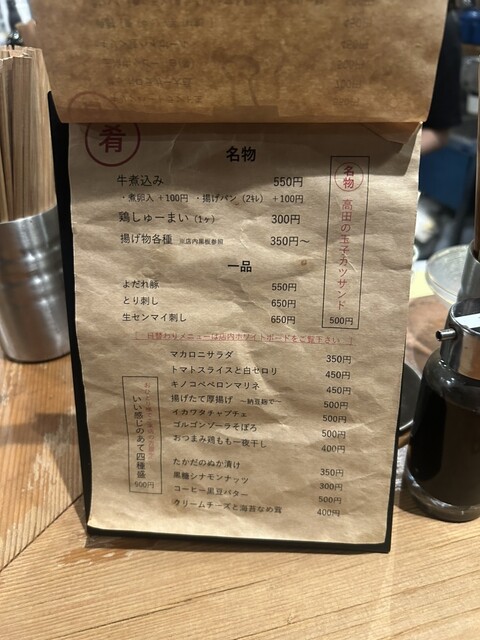 肴
名物
牛煮込み 550円
・煮卵入 +100円 ・揚げパン(2ｷﾚ) +100円
鶏しゅーまい(1ヶ) 300円
揚げ物各種 ※店内黒板参照 350円〜
名物
高田の玉子カツサンド
500円
一品
よだれ豚 550円
とり刺し 650円
生センマイ刺し 650円
日替わりメニューは店内ホワイトボードをご覧下さい
マカロニサラダ 350円
トマトスライスと白セロリ 450円
キノコペペロンマリネ 450円
揚げたて厚揚げ 〜納豆麹で〜 500円
イカワタチャプチェ 500円
ゴルゴンゾーラそぼろ 500円
おつまみ鶏もも一夜干し 400円
いい感じのあて四種盛
600円
たかだのぬか漬け 350円
黒糖シナモンナッツ 300円
コーヒー黒豆バター 500円
クリームチーズと海苔なめ茸 400円